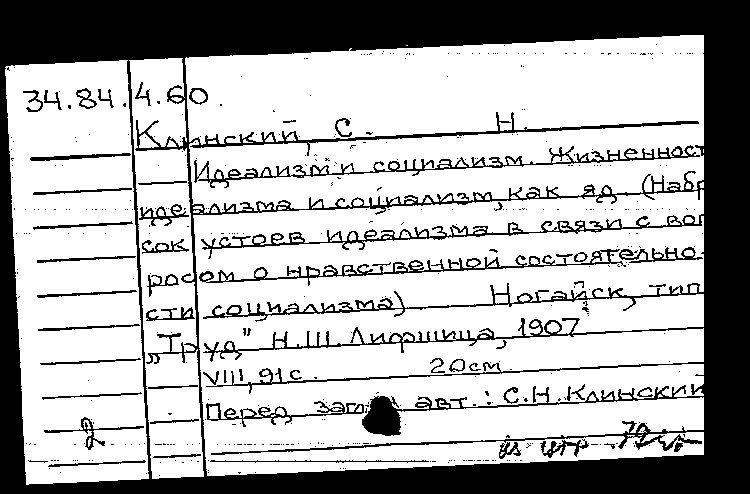 34.84.4.60.
Клинский, С. Н.
Идеализм и социализм. Жизненност
идеализма и социализм, как яд. (Набр
сок устоев идеализма в связи с воп
росом о нравственной состоятельно-
сти социализма) Ногайск, тип
„Труд" Н.Ш. Лифшица, 1907
VIII, 91 с. 20 см
Перед загл авт.: С.Н. Клинский
2